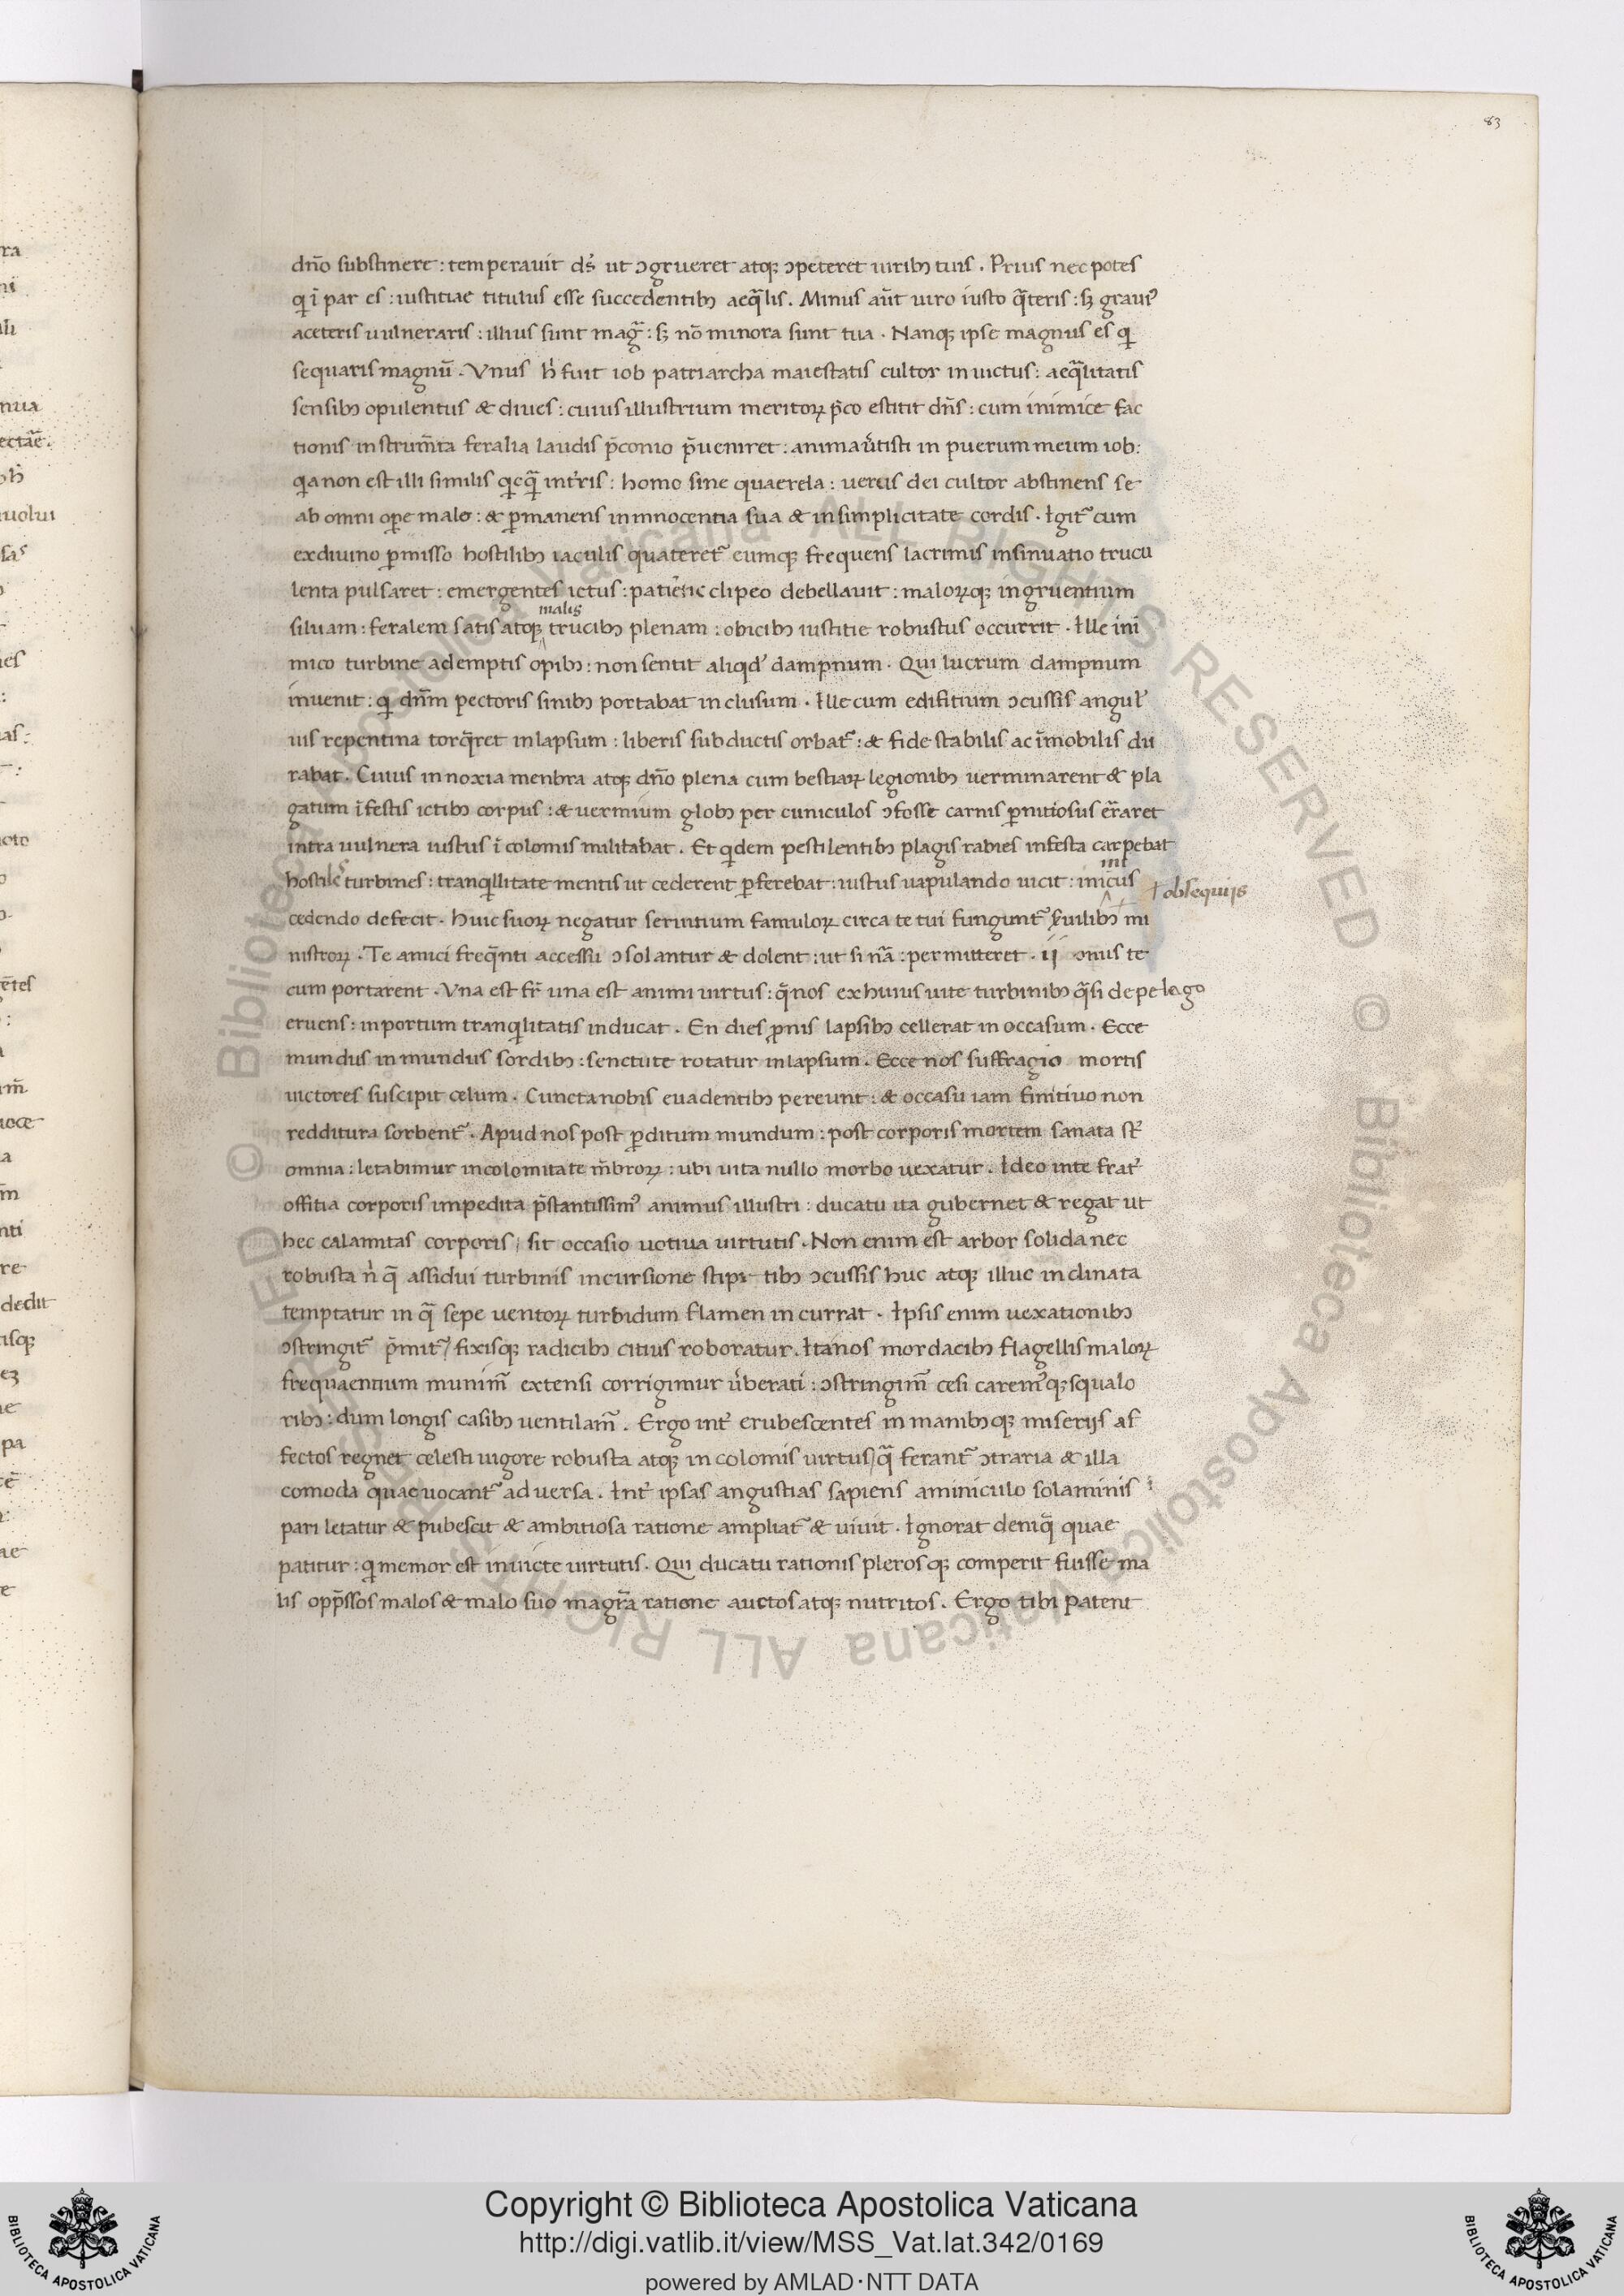 83
dn̄o substinere : temperauit ds̄ ut ɔgrueret atqꝫ ɔpeteret uiribꝫ tuis . Prius nec potes
qi ī par es : iustitiae titulus esse succedentibꝫ aeq̄lis . Minus aūt uiro iusto q̄teris : sꝫ grauiꝰ
aceteris uulneraris : illius sunt maḡ : sꝫ nō minora sunt tua . Nanqꝫ ipse magnus es qi
sequaris magnū . Vnus h̄ fuit iob patriarcha maiestatis cultor inuictus : aeq̄litatis
sensibꝫ opulentus & diues : cuius illustrium meritoꝝ p̄co estitit dn̄s : cum inimice fac
tionis instrum̄ta feralia laudis p̄conio p̄ueniret : animau̓tisti in puerum meum iob :
qia non est illi similis qicq̄ int̓ris : homo sine quaerela : uerus dei cultor abstinens se
ab omni oꝑe malo : & ꝑmanens in innocentia sua & in simplicitate cordis . Igit᷑ cum
ex diuino ꝑmisso hostilibꝫ iaculis quateret᷑ eumqꝫ frequens lacrimis insinuatio trucu
lenta pulsaret : emergentes ictus : patiētie clipeo debellauit : maloꝝqꝫ ingruentium
malis
siluam : feralem satis atqꝫ trucibꝫ plenam : obicibꝫ iustitie robustus occurrit . Ille ini
mico turbine ademptis opibꝫ : non sentit aliqd̓ dampnum . Qui lucrum dampnum
inuenit : qi dn̄m pectoris sinibꝫ portabat inclusum . Ille cum edifitium ɔcussis angul̓
uis repentina torq̄ret in lapsum : liberis subductis orbat᷑ : & fide stabilis ac īmobilis du
rabat . Cuius innoxia menbra atqꝫ dn̄o plena cum bestiaꝝ legionibꝫ uerminarent & pla
gatum īfestis ictibꝫ corpus : & uermium globꝫ per cuniculos ɔfosse carnis ꝑnitiosus er̄aret
intra uulnera iustus ī colomis militabat . Et qidem pestilentibꝫ plagis rabies infesta carpebat
hostiles turbines : tranqillitate mentis ut cederent ꝑferebat : iustus uapulando uicit : inicus
mi
ł obsequijs
cedendo defecit . Huic suoꝝ negatur seruitium famuloꝝ circa te tui fungunt᷑ s̓uilibꝫ mi
nistroꝝ . Te amici freq̄nti accessu ɔsolantur & dolent : ut si nā : permitteret . ii onus te
cum portarent . Vna est fr̄ una est animi uirtus : q̄ nos ex huius uite turbinibꝫ q̄si de pelago
eruens : in portum tranqilitatis inducat . En dies ꝓnis lapsibꝫ cellerat in occasum . Ecce
mundus inmundus sordibꝫ : senctute rotatur in lapsum . Ecce nos suffragio mortis
uictores suscipit celum . Cuncta nobis euadentibꝫ pereunt : & occasu iam finitiuo non
redditura sorbent᷑ . Apud nos post ꝑditum mundum : post corporis mortem sanata st̄
omnia : letabimur incolomitate m̄broꝝ : ubi uita nullo morbo uexatur . Ideo in te frat̓
offitia corporis impedita p̄stantissimꝰ animus illustri : ducatu ita gubernet & regat ut
hec calamitas corporis / sit occasio uotiua uirtutis . Non enim est arbor solida nec
robusta n̓ q̄ assidui turbinis incursione stipi tibꝫ ɔcussis huc atqꝫ illuc inclinata
temptatur in q̄ sepe uentoꝝ turbidum flamen incurrat . Ipsis enim uexationibꝫ
ɔstringit᷑ p̄mit᷑ / fixisqꝫ radicibꝫ citius roboratur . Ita nos mordacibꝫ flagellis maloꝝ
frequaentium munim̄ extensi corrigimur u̓berati : ɔstringim̄ cesi caremꝰqꝫ squalo
ribꝫ : dum longis casibꝫ uentilam̄ . Ergo int̓ erubescentes in manibꝫqꝫ miserijs af
fectos regnet celesti uigore robusta atqꝫ incolomis uirtus / q̄ ferant᷑ ɔtraria & illa
comoda quae uocant᷑ aduersa . Int̓ ipsas angustias sapiens aminiculo solaminis ī
pari letatur & pubescit & ambitiosa ratione ampliat᷑ & uiuit . Ignorat deniq̄ quae
patitur : qi memor est inuicte uirtutis . Qui ducatu rationis plerosqꝫ comperit fuisse ma
lis opp̄ssos malos & malo suo magr̄a ratione auctos atqꝫ nutritos . Ergo tibi patent
Copyright © Biblioteca Apostolica Vaticana
http://digi.vatlib.it/view/MSS_Vat.lat.342/0169
powered by AMLAD·NTT DATA
BIBLIOTECA APOSTOLICA VATICANA
BIBLIOTECA APOSTOLICA VATICANA